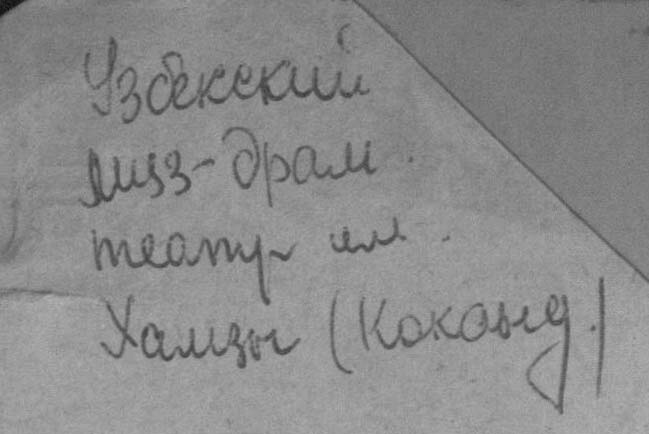 Узбекский
муз-драм.
театр им.
Хамзы (Коканд.)